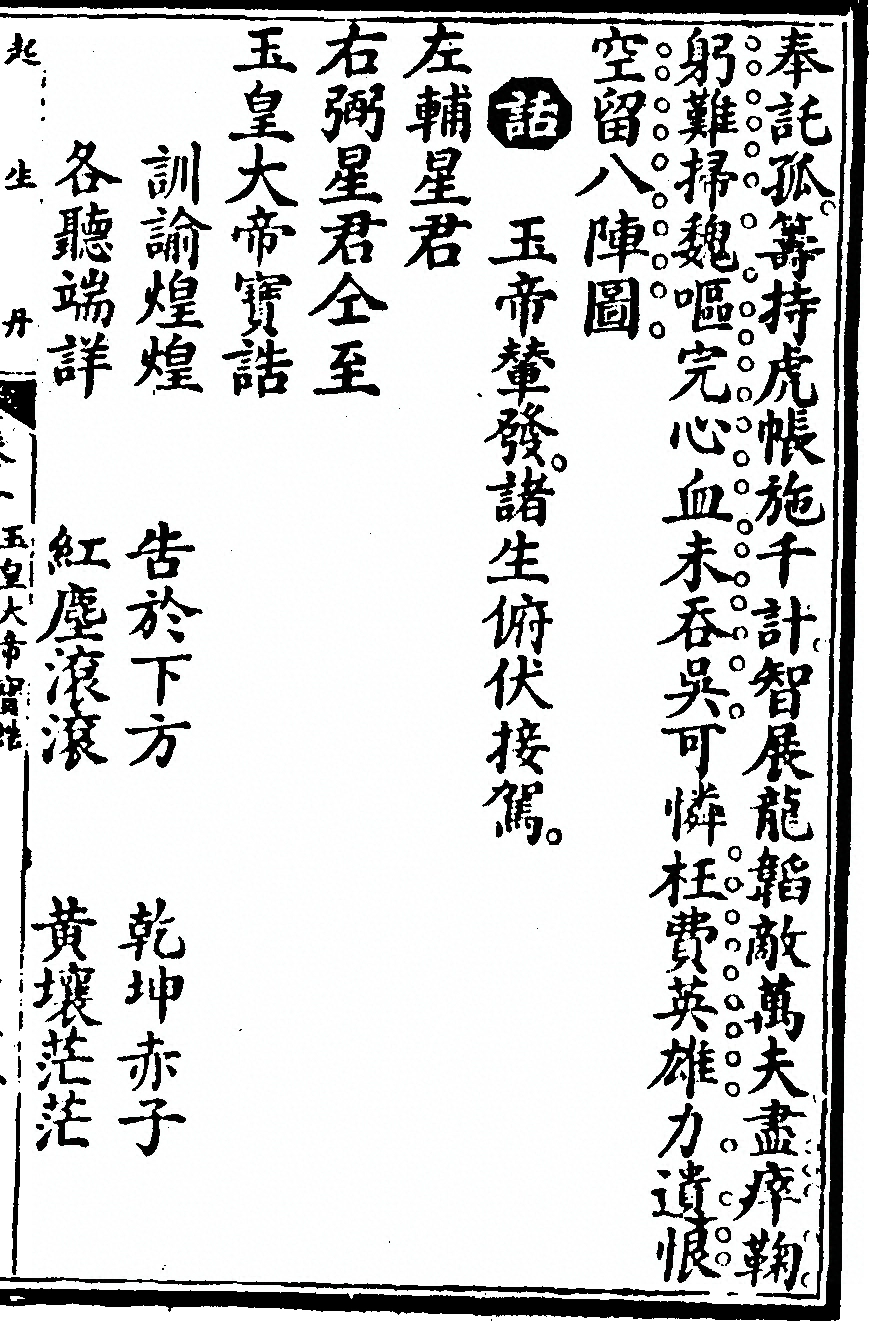 奉託孤籌持虎帳施千計智展龍韜敵萬夫盡瘁鞠
躬難掃魏嘔完心血未吞吳可憐枉費英雄力遺恨
空留八陣圖
話 玉帝輦發諸生俯伏接駕
左輔星君
右弼星君仝至
玉皇大帝寶誥
訓諭煌煌 告於下方 乾坤赤子
各聽端詳 紅塵滾滾 黃壤茫茫
起生丹
卷一 玉皇大帝寶誥